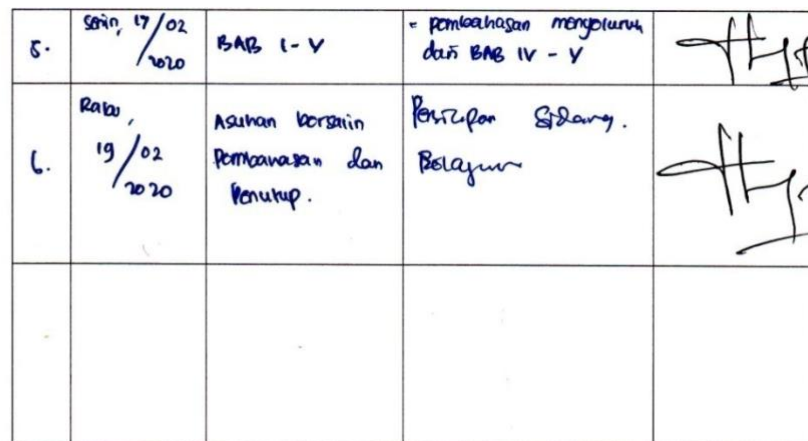 5.
Senin, 17/02
2020
BAB I - V
= pembahasan menyeluruh
dari BAB IV - V
6.
Rabu,
19/02
2020
Asuhan bersalin
Pembahasan dan
Penutup.
Persiapan Sidang.
Belajar